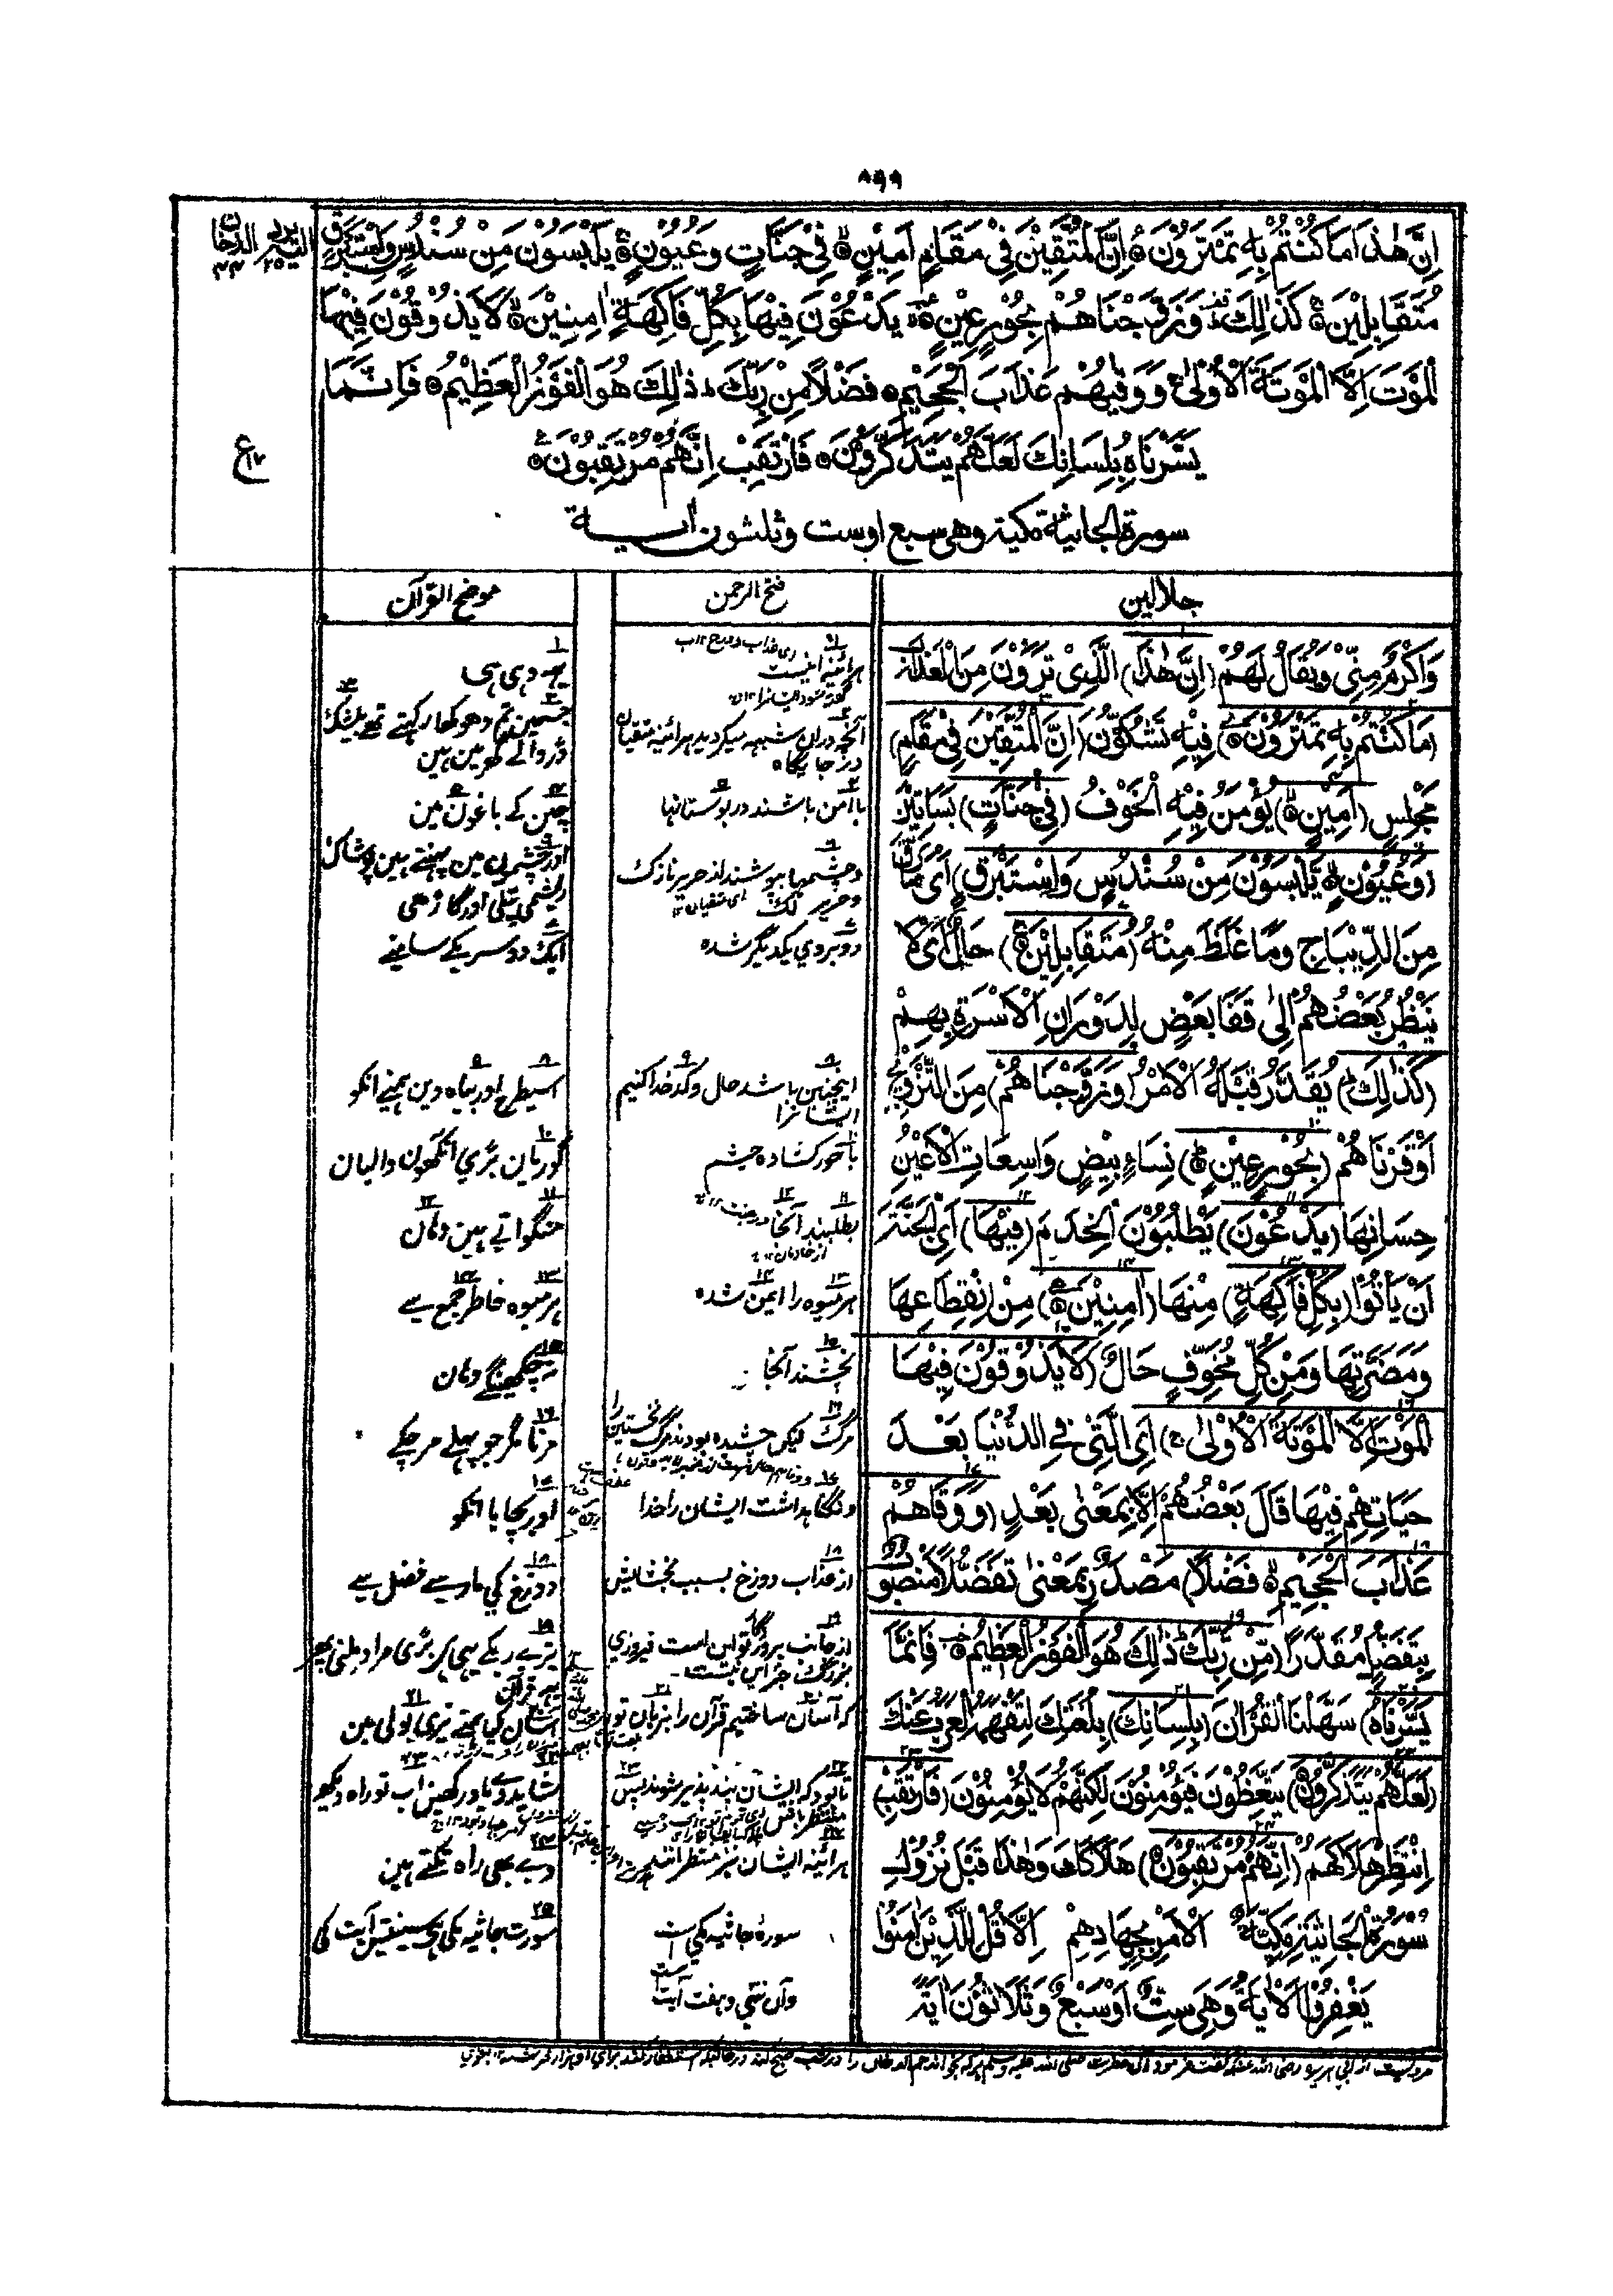 ٨٩٩
الیه یرد ٢٥ الدخان ٤٤
اِنَّ هٰذَا مَا كُنْتُمْ بِهٖ تَمْتَرُوْنَ ۞ اِنَّ الْمُتَّقِيْنَ فِيْ مَقَامٍ اَمِيْنٍ ۞ فِيْ جَنَّاتٍ وَعُيُوْنٍ ۞ يَلْبَسُوْنَ مِنْ سُنْدُسٍ وَاِسْتَبْرَقٍ
مُتَقَابِلِيْنَ ۞ كَذٰلِكَ وَزَوَّجْنَاهُمْ بِحُوْرٍ عِيْنٍ ۞ يَدْعُوْنَ فِيْهَا بِكُلِّ فَاكِهَةٍ اٰمِنِيْنَ ۞ لَا يَذُوْقُوْنَ فِيْهَا
الْمَوْتَ اِلَّا الْمَوْتَةَ الْاُوْلٰى وَوَقٰىهُمْ عَذَابَ الْجَحِيْمِ ۞ فَضْلًا مِنْ رَبِّكَ ذٰلِكَ هُوَ الْفَوْزُ الْعَظِيْمُ ۞ فَاِنَّمَا
يَسَّرْنَاهُ بِلِسَانِكَ لَعَلَّهُمْ يَتَذَكَّرُوْنَ ۞ فَارْتَقِبْ اِنَّهُمْ مُرْتَقِبُوْنَ ۞
سورة الجاثية مكية وهي سبع اوست وثلثون اٰية
جلالين
وَاَكْرَمُ مِنِّيْ وَيُقَالُ لَهُمْ (اِنَّ هٰذَا) الَّذِيْ تَرَوْنَ مِنَ الْعَذَابِ
(مَا كُنْتُمْ بِهٖ تَمْتَرُوْنَ) فِيْهِ تَشُكُّوْنَ (اِنَّ الْمُتَّقِيْنَ فِيْ مَقَامٍ)
مَجْلِسٍ (اَمِيْنٍ) يُؤْمَنُ فِيْهِ الْخَوْفُ (فِيْ جَنَّاتٍ) بَسَاتِيْنَ
(وَعُيُوْنٍ يَلْبَسُوْنَ مِنْ سُنْدُسٍ وَاِسْتَبْرَقٍ) اَيْ مَا رَقَّ
مِنَ الدِّيْبَاجِ وَمَا غَلُظَ مِنْهُ (مُتَقَابِلِيْنَ) حَالٌ اَيْ لَا
يَنْظُرُ بَعْضُهُمْ اِلٰى قَفَا بَعْضٍ لِدَوْرَانِ الْاَسِرَّةِ بِهِمْ
(كَذٰلِكَ) يُقَدَّرُ قَبْلَهُ الْاَمْرُ (وَزَوَّجْنَاهُمْ) مِنَ التَّزْوِيْجِ
اَوْ قَرَنَّاهُمْ (بِحُوْرٍ عِيْنٍ) نِسَاءٍ بِيْضٍ وَاسِعَاتِ الْاَعْيُنِ
حِسَانِهَا (يَدْعُوْنَ) يَطْلُبُوْنَ الْخَدَمَ (فِيْهَا) اَيِ الْجَنَّةِ
اَنْ يَأْتُوْا (بِكُلِّ فَاكِهَةٍ) مِنْهَا (اٰمِنِيْنَ) مِنِ انْقِطَاعِهَا
وَمَضَرَّتِهَا وَمِنْ كُلِّ مُخَوِّفٍ حَالٌ (لَا يَذُوْقُوْنَ فِيْهَا
الْمَوْتَ اِلَّا الْمَوْتَةَ الْاُوْلٰى) اَيِ الَّتِيْ فِي الدُّنْيَا بَعْدَ
حَيَاتِهِمْ فِيْهَا قَالَ بَعْضُهُمْ اِلَّا بِمَعْنٰى بَعْدِ (وَوَقَاهُمْ
عَذَابَ الْجَحِيْمِ فَضْلًا) مَصْدَرٌ بِمَعْنٰى تَفَضُّلًا مَنْصُوْبٌ
بِتَفَضَّلَ مُقَدَّرًا (مِّنْ رَبِّكَ ذٰلِكَ هُوَ الْفَوْزُ الْعَظِيْمُ فَاِنَّمَا
يَسَّرْنَاهُ) سَهَّلْنَا الْقُرْاٰنَ (بِلِسَانِكَ) بِلُغَتِكَ لِتَفْهَمَهُ الْعَرَبُ عَنْكَ
(لَعَلَّهُمْ يَتَذَكَّرُوْنَ) يَتَّعِظُوْنَ فَيُؤْمِنُوْنَ لٰكِنَّهُمْ لَا يُؤْمِنُوْنَ (فَارْتَقِبْ)
اِنْتَظِرْ هَلَاكَهُمْ (اِنَّهُمْ مُرْتَقِبُوْنَ) هَلَاكَكَ وَهٰذَا قَبْلَ نُزُوْلِ
سُوْرَةُ الْجَاثِيَةِ مَكِّيَّةٌ الْاَمْرِ بِجِهَادِهِمْ اِلَّا قُلْ لِلَّذِيْنَ اٰمَنُوْا
يَغْفِرُوْا الْاٰيَةَ وَهِيَ سِتٌّ اَوْ سَبْعٌ وَثَلَاثُوْنَ اٰيَةً
فتح الرحمن
هرآئینه اینست
آنچه دران شبهه میکردید هرآئینه متقیان
در جایگاه
با امن باشند در بوستانها
و چشمها بپوشند از حریر نازک
و حریر لک
روبروی یکدیگر شده
اینچنین باشد حال و کدخدا کنیم
ایشانرا
با حور کشاده چشم
بطلبند آنجا
هر میوه را ایمن شده
نچشند آنجا
مرگ لیکن چشیده بودند مرگ نخستین را
و نگاهداشت ایشان را خدا
از عذاب دوزخ بسبب بخشایش
از جانب پروردگار تو این است فیروزی
بزرگ جز این نیست
که آسان ساختیم قرآن را بزبان تو
تا بود که ایشان پندپذیر شوند پس
منتظر باش
هرآئینه ایشان نیز منتظرانند
سورهٔ جاثیه مکی است
وآن سی و هفت آیت است
موضح القرآن
یہ وہی ہی
جسمین تم دھوکھا رکہتے تھے بیشک
ڈر والے گھر مین ہین
چین کے باغون مین
اور چشمون مین پہنتے ہین پوشاک
ریشمی پتلی اور گاڑھی
ایک دوسریکے سامہنے
اسیطرح اور بیاہ دین ہمنے انکو
گوریان بڑی آنکھون والیان
منگواتے ہین وہان
ہر میوہ خاطر جمع سے
نچکھینگے وہان
مرنا مگر جو پہلے مرچکے
اور بچایا انکو
دوزخ کی مار سے فضل سے
تیرے ربکے یہی ہی بڑی مراد ملنی
یہ قرآن
آسان کیا ہمنے تیری بولی مین
شاید وے یاد رکھین اب تو راہ دیکھ
وے بھی راہ تکتے ہین
سورت جاثیہ مکی ہی سینتیس آیت کی